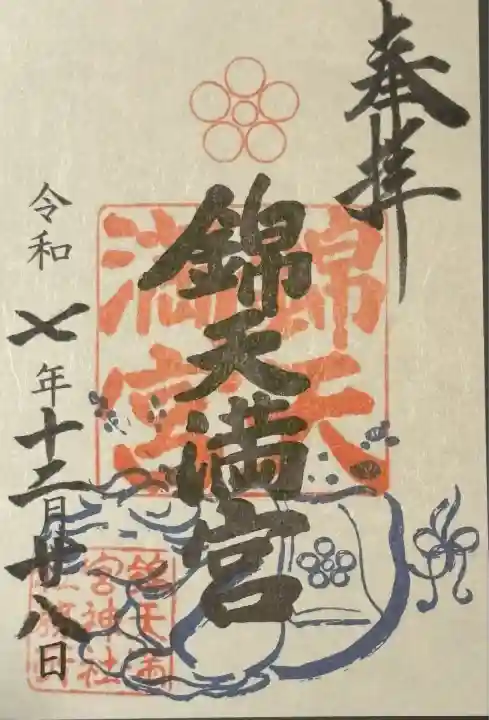 奉拝
錦天満宮
錦天
満宮
令和七年十二月廿八日
錦天満
宮神社